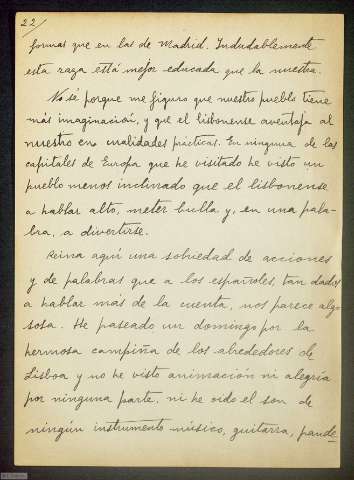 22/
formas que en las de Madrid. Indudablemente
esta raza está mejor educada que la nuestra.
No sé porque me figuro que nuestro pueblo tiene
más imaginación, y que el lisbonense aventaja al
nuestro en cualidades prácticas. En ninguna de las
capitales de Europa que he visitado he visto un
pueblo menos inclinado que el lisbonense
a hablar alto, meter bulla y, en una pala-
bra, a divertirse.
Reina aquí una sobriedad de acciones
y de palabras que a los españoles, tan dados
a hablar más de la cuenta, nos parece algo
sosa. He paseado un domingo por la
hermosa campiña de los alrededores de
Lisboa y no he visto animación ni alegría
por ninguna parte, ni he oido el son de
ningún instrumento músico, guitarra, pande-